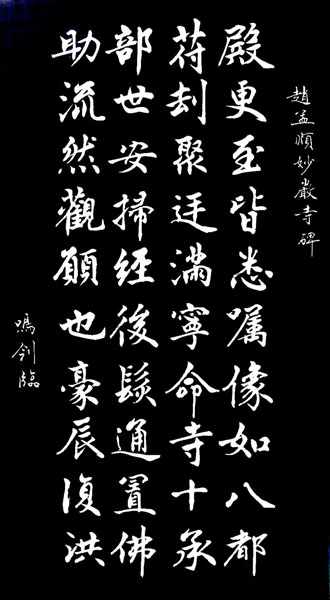 趙孟頫妙嚴寺碑
殿更至皆悉嘱像如八都
苻刦聚迋滿寧命寺十承
部世安掃経後通置佛
助流然觀願也豪辰復洪
鳴剑臨